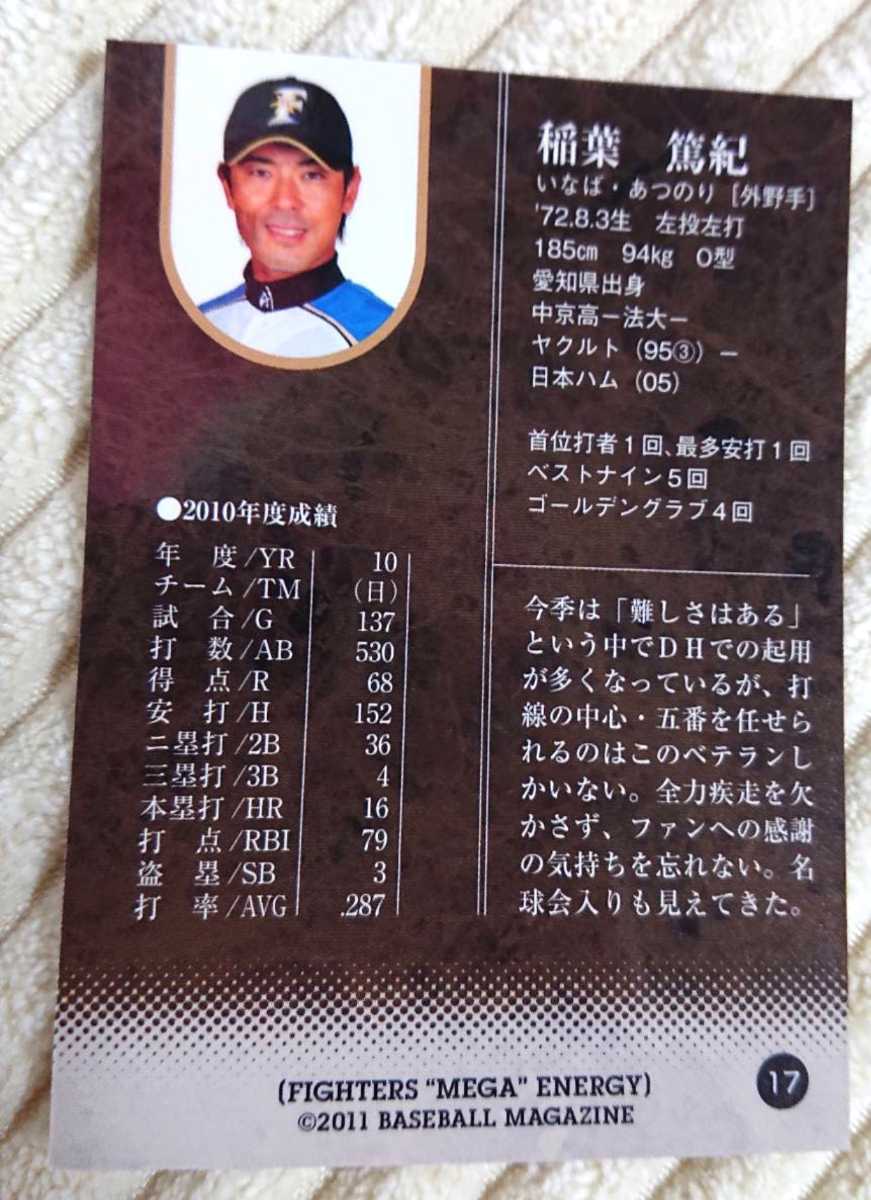 稲葉 篤紀
いなば・あつのり [外野手]
'72.8.3生 左投左打
185㎝ 94㎏ O型
愛知県出身
中京高ー法大ー
ヤクルト (95③) ー
日本ハム (05)
首位打者1回、最多安打1回
ベストナイン5回
ゴールデングラブ4回
●2010年度成績
年 度/YR 10
チーム/TM (日)
試 合/G 137
打 数/AB 530
得 点/R 68
安 打/H 152
二塁打/2B 36
三塁打/3B 4
本塁打/HR 16
打 点/RBI 79
盗 塁/SB 3
打 率/AVG .287
今季は「難しさはある」
という中でDHでの起用
が多くなっているが、打
線の中心・五番を任せら
れるのはこのベテランし
かいない。全力疾走を欠
かさず、ファンへの感謝
の気持ちを忘れない。名
球会入りも見えてきた。
(FIGHTERS "MEGA" ENERGY)
©2011 BASEBALL MAGAZINE
17
F